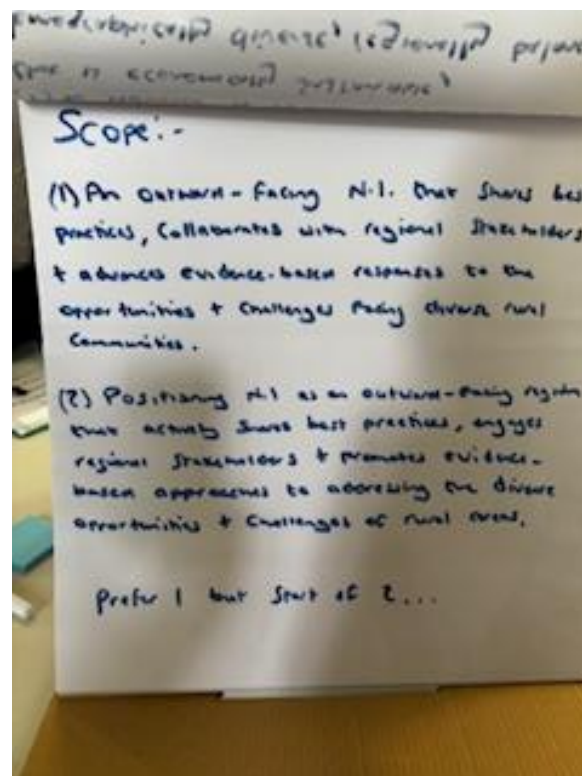 Scope:-
(1) An outward-facing N.I. that shares best
practices, collaborates with regional stakeholders
+ advances evidence-based responses to the
opportunities + challenges facing diverse rural
communities.
(2) Positioning N.I as an outward-facing region
that actively shares best practices, engages
regional stakeholders + promotes evidence-
based approaches to addressing the diverse
opportunities + challenges of rural areas.
Prefer 1 but start of 2...